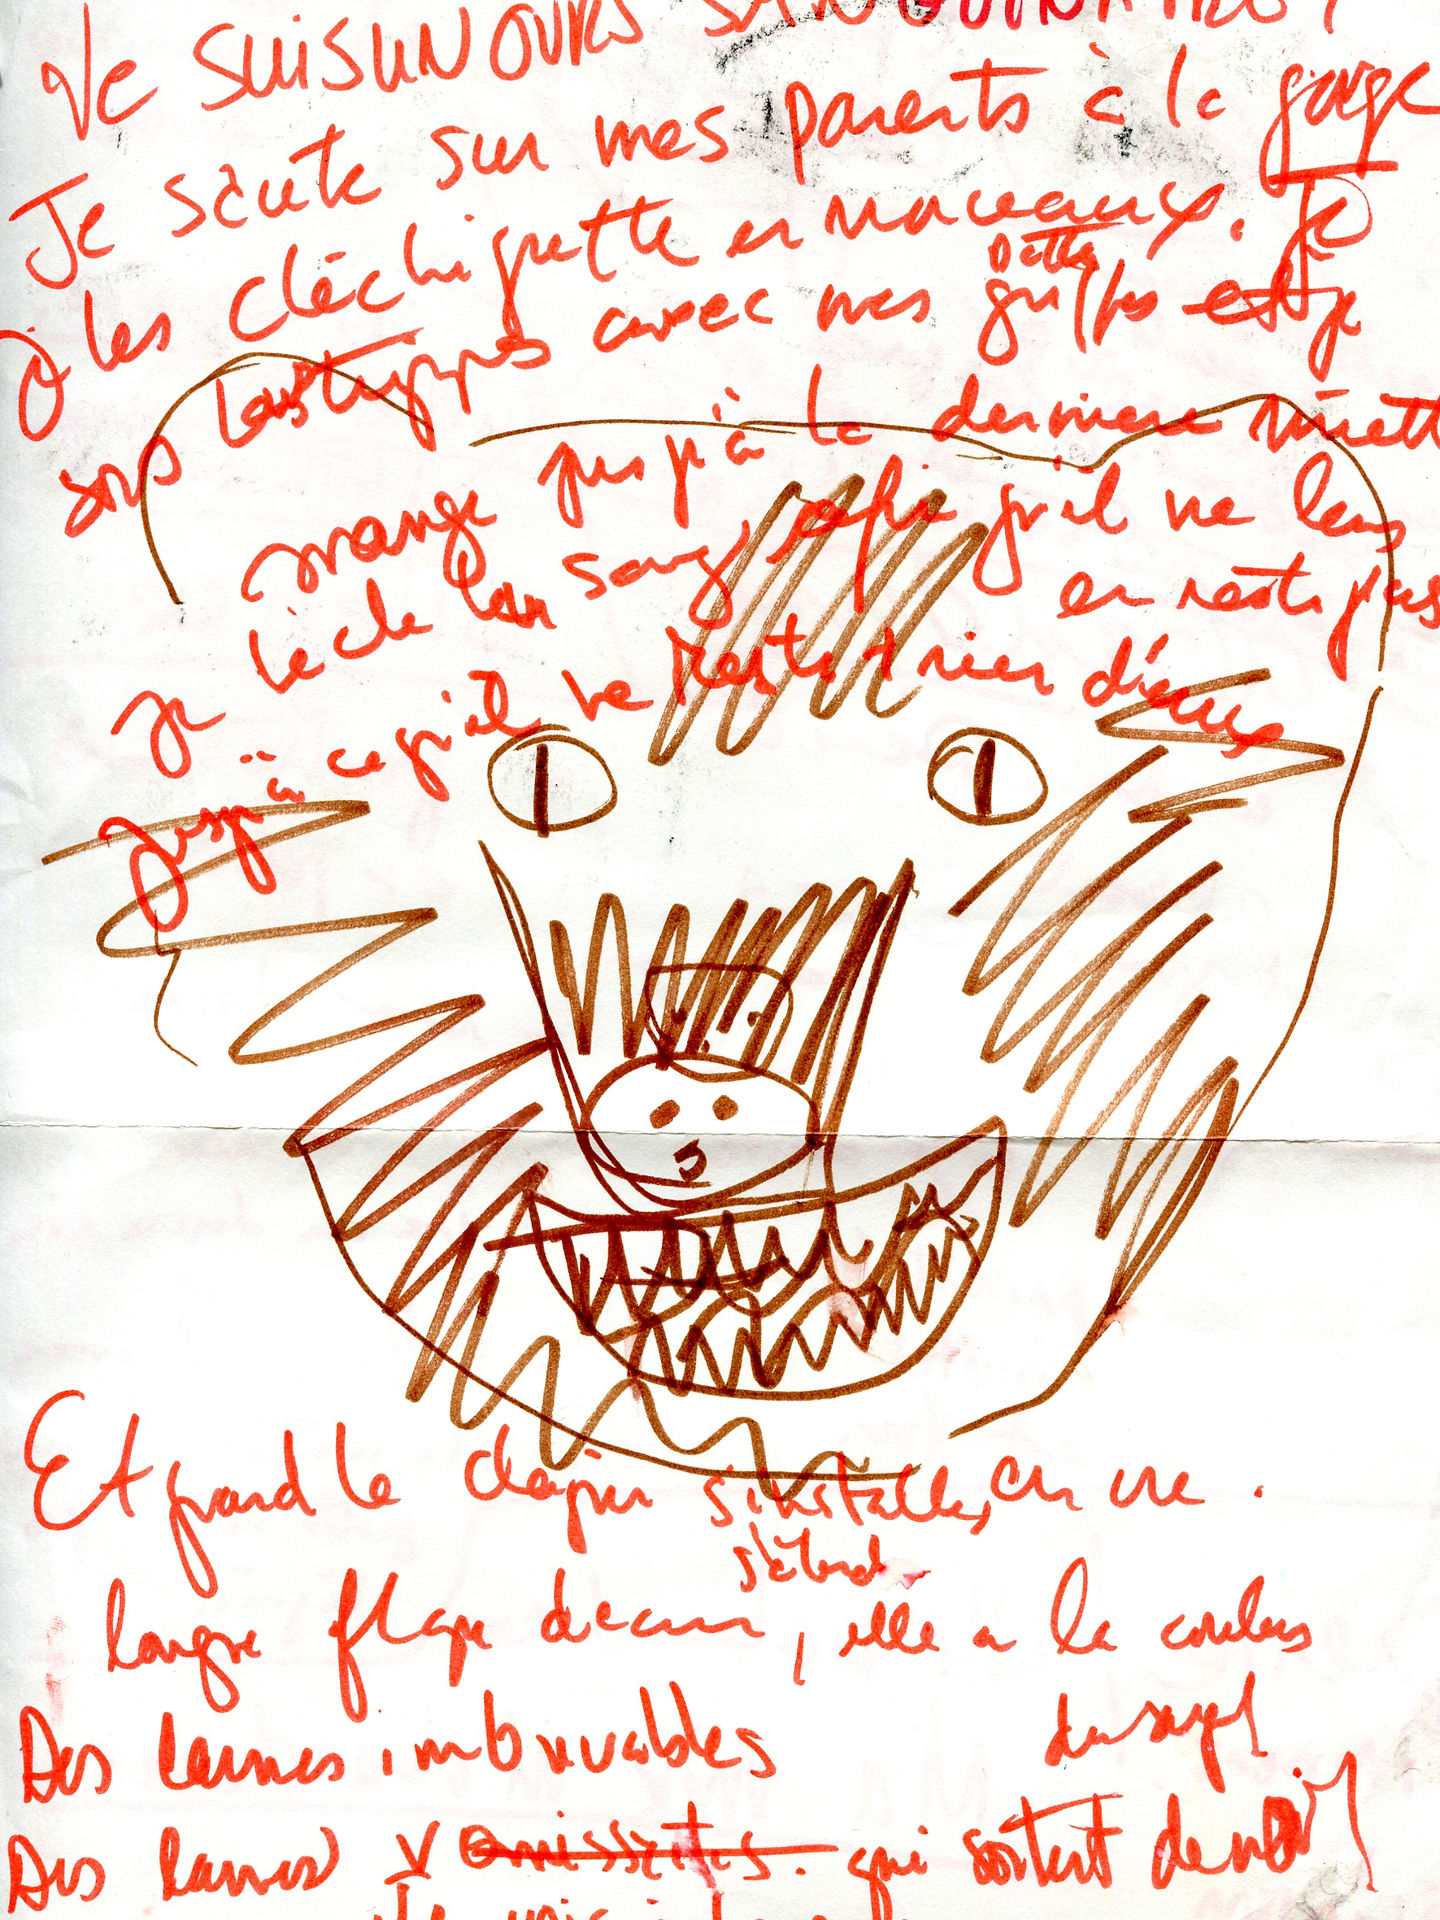 Je SUIS UN OURS SANGUINAIRE
Je saute sur mes parents à la gorge
les déchiquette en morceaux. Je
avec mes griffes et je
pattes
mange jusqu'à la dernière miette
Je lèche leur sang, afin qu'il ne leur
en reste pas
jusqu'à ce qu'il ne reste rien d'eux
Et quand le chagrin s'installe, en une
s'étend
longue flaque d'eau, elle a la couleur
du sang
Des larmes imbuvables
Des larmes qui sortent de moi